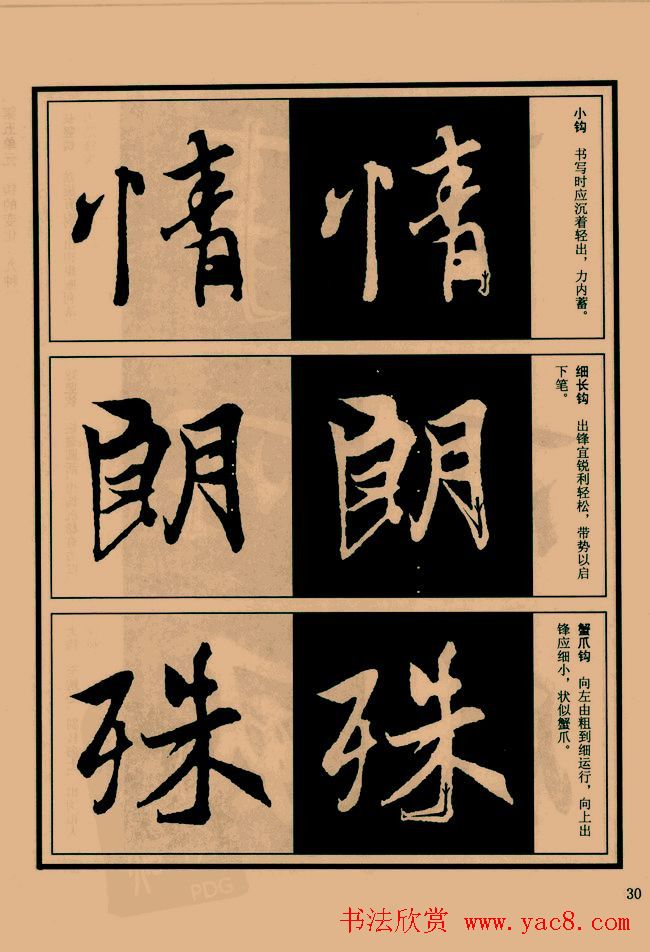 情 情
小钩 书写时应沉着轻出，力内蓄。
朗 朗
细长钩 出锋宜锐利轻松，带势以启
下笔。
殊 殊
蟹爪钩 向左由粗到细运行，向上出
锋应细小，状似蟹爪。
PDG
30
书法欣赏 www.yac8.com